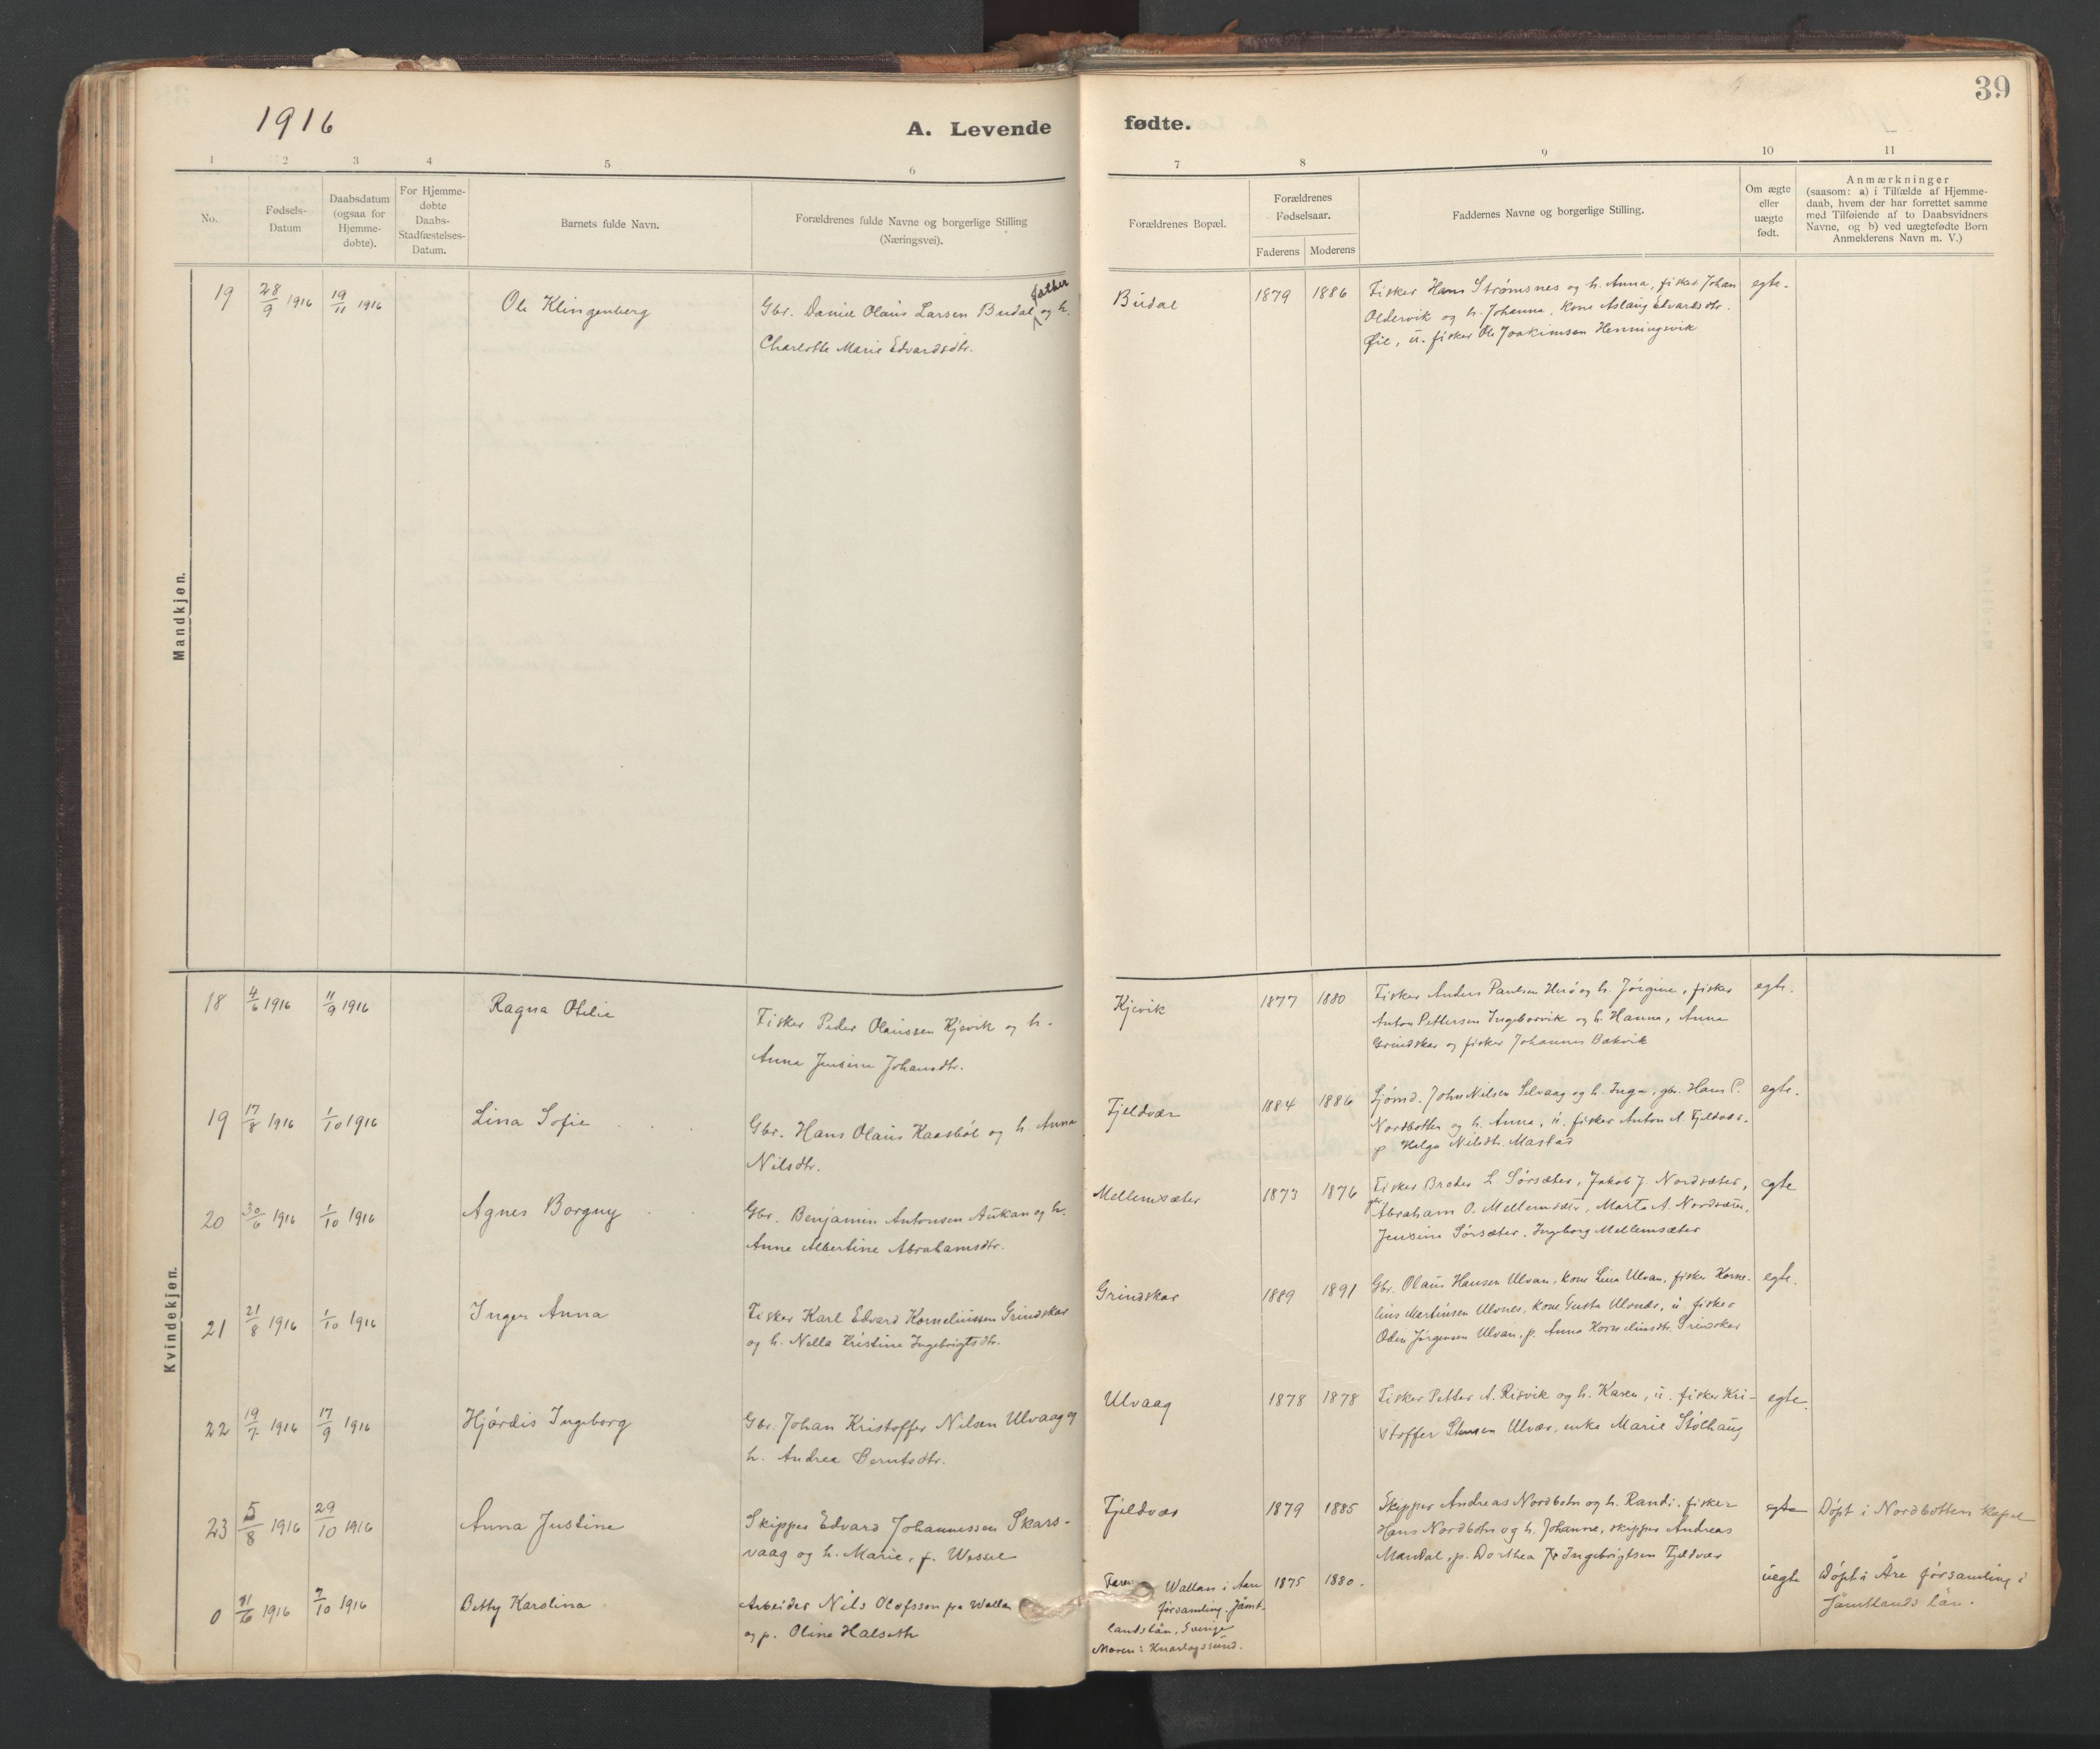 39
1916
A. Levende
fødte.
1 2 3 4 5 6
7 8 9 10 11
No.
Fødsels-
Datum
Daabsdatum
(ogsaa for
Hjemme-
døbte).
For Hjemme-
døbte
Daabs-
Stadfæstelses-
Datum.
Barnets fulde Navn.
Forældrenes fulde Navne og borgerlige Stilling
(Næringsvei).
Forældrenes Bopæl.
Forældrenes
Fødselsaar.
Faderens Moderens
Faddernes Navne og borgerlige Stilling.
Om ægte
eller
uægte
født.
Anmærkninger
(saasom: a) i Tilfælde af Hjemme-
daab, hvem der har forrettet samme
med Tilføiende af to Daabsvidners
Navne, og b) ved uægtefødte Børn
Anmelderens Navn m. V.)
Mandkjøn.
19 28/9 1916 19/11 1916
Ole Klingenberg
Gbr. Daniel Olaus Larsen Budal og h.
Charlotte Marie Edvardsdtr.
Budal
1879 1886
Fisker Hans Strømsnes og h. Anna, fisker Johan
Oldervik og h. Johanna, kone Aslaug Edvardsdtr.
Øie, u. fisker Ole Joakimsen Henningsvik
egte.
Kvindekjøn.
18 4/6 1916 11/9 1916
Ragna Otilie
Fisker Peder Olaussen Kjevik og h.
Anna Jensine Johansdtr.
Kjevik
1877 1880
Fisker Anders Paulsen og h. Jørgine, fisker
Anton Pettersen Ingeborvik og h. Hanna, Anna
Grindskar og fisker Johannes Bakvik
egte.
19 17/8 1916 1/10 1916
Lina Sofie
Gbr. Hans Olaus Kaasbøl og h. Anna
Nilsdtr.
Fjeldvær
1884 1886
Sjømd. John Nilsen Selvaag og h. Inga, gbr. Hans P.
Nordbotten og h. Anna, u. fisker Anton A. Fjeldvær.
p Helga Nilsdtr. Mastad
egte.
20 30/6 1916 1/10 1916
Agnes Borgny
Gbr. Benjamin Antonsen Aukan og h.
Anne Albertine Abrahamsdtr.
Mellemsæter
1873 1876
Fisker Broder L. Sørsæter, Jakob J. Nordsæter,
gbr Abraham O. Mellemsæter, Marta A. Nordsæter,
Jensine Sørsæter, Ingeborg Mellemsæter
egte
21 21/8 1916 1/10 1916
Inger Anna
Fisker Karl Edvard Korneliussen Grindskar
og h. Nella Kristine Ingebrigtsdtr.
Grindskar
1889 1891
Gbr. Olaus Hansen Ulvan, kone Lina Ulvan, fisker Korne-
lius Martinsen Ulvnes, kone Gusta Ulvnes, u. fisker
Odin Jørgensen Ulvan, p. Anna Korneliusdtr. Grindskar
egte.
22 19/7 1916 17/9 1916
Hjørdis Ingeborg
Gbr. Johan Kristoffer Nilsen Ulvaag og
h. Andrea Berntsdtr.
Ulvaag
1878 1878
Fisker Petter A. Risvik og h. Karen, u. fisker Kri-
stoffer Ulvær, enke Marie Stølhaug
egte.
23 5/8 1916 29/10 1916
Anna Justine
Skipper Edvard Johannessen Skars-
vaag og h. Marie, f. Wessel
Fjeldvær
1879 1885
Skipper Andreas Nordbotn og h. Randi, fisker
Hans Nordbotn og h. Johanne, skipper Andreas
Mandal, p. Dorthea Ingebrigtsen Fjeldvær
egte
Døpt i Nordbotten kapel
0 /6 1916 2/10 1916
Betty Karolina
Arbeider Nils Olofsson fra Wallan
og p. Oline Halseth
Faren Wallan i Aare
församling, Jämt-
landslän, Sverige
Moren: Knarlagssund.
1875 1880.
uegte
Døpt i Åre församling i
Jämtlands län.